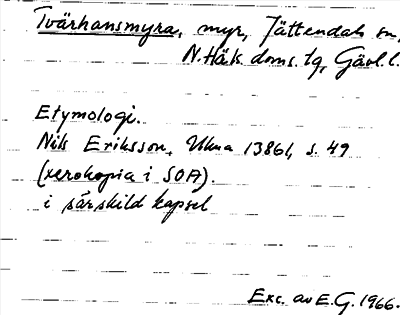 Tvärhansmyra, myr, Jättendals sn,
N. Häls. doms. tg, Gävl. l.
Etymologi.
Nils Eriksson, Ulma 13861, s. 49
(xerokopia i SOA).
i särskild kapsel
Exc. av E.G. 1966.